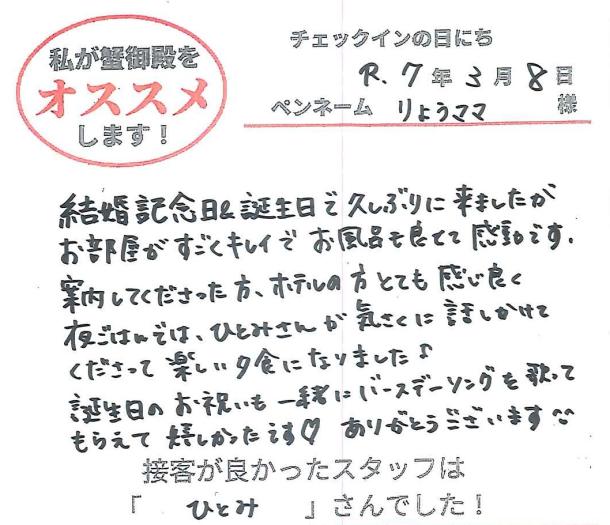 私が蟹御殿を
オススメ
します！
チェックインの日にち
R.7年3月8日
ペンネーム りょうママ 様
結婚記念日&誕生日で久しぶりに来ましたが
お部屋がすごくキレイでお風呂も良くて感動です.
案内してくださった方、ホテルの方とても感じ良く
夜ごはんでは、ひとみさんが気さくに話しかけて
くださって楽しい夕食になりました♪
誕生日のお祝いも一緒にバースデーソングを歌って
もらえて嬉しかったです♡ ありがとうございます
接客が良かったスタッフは
「 ひとみ 」さんでした！